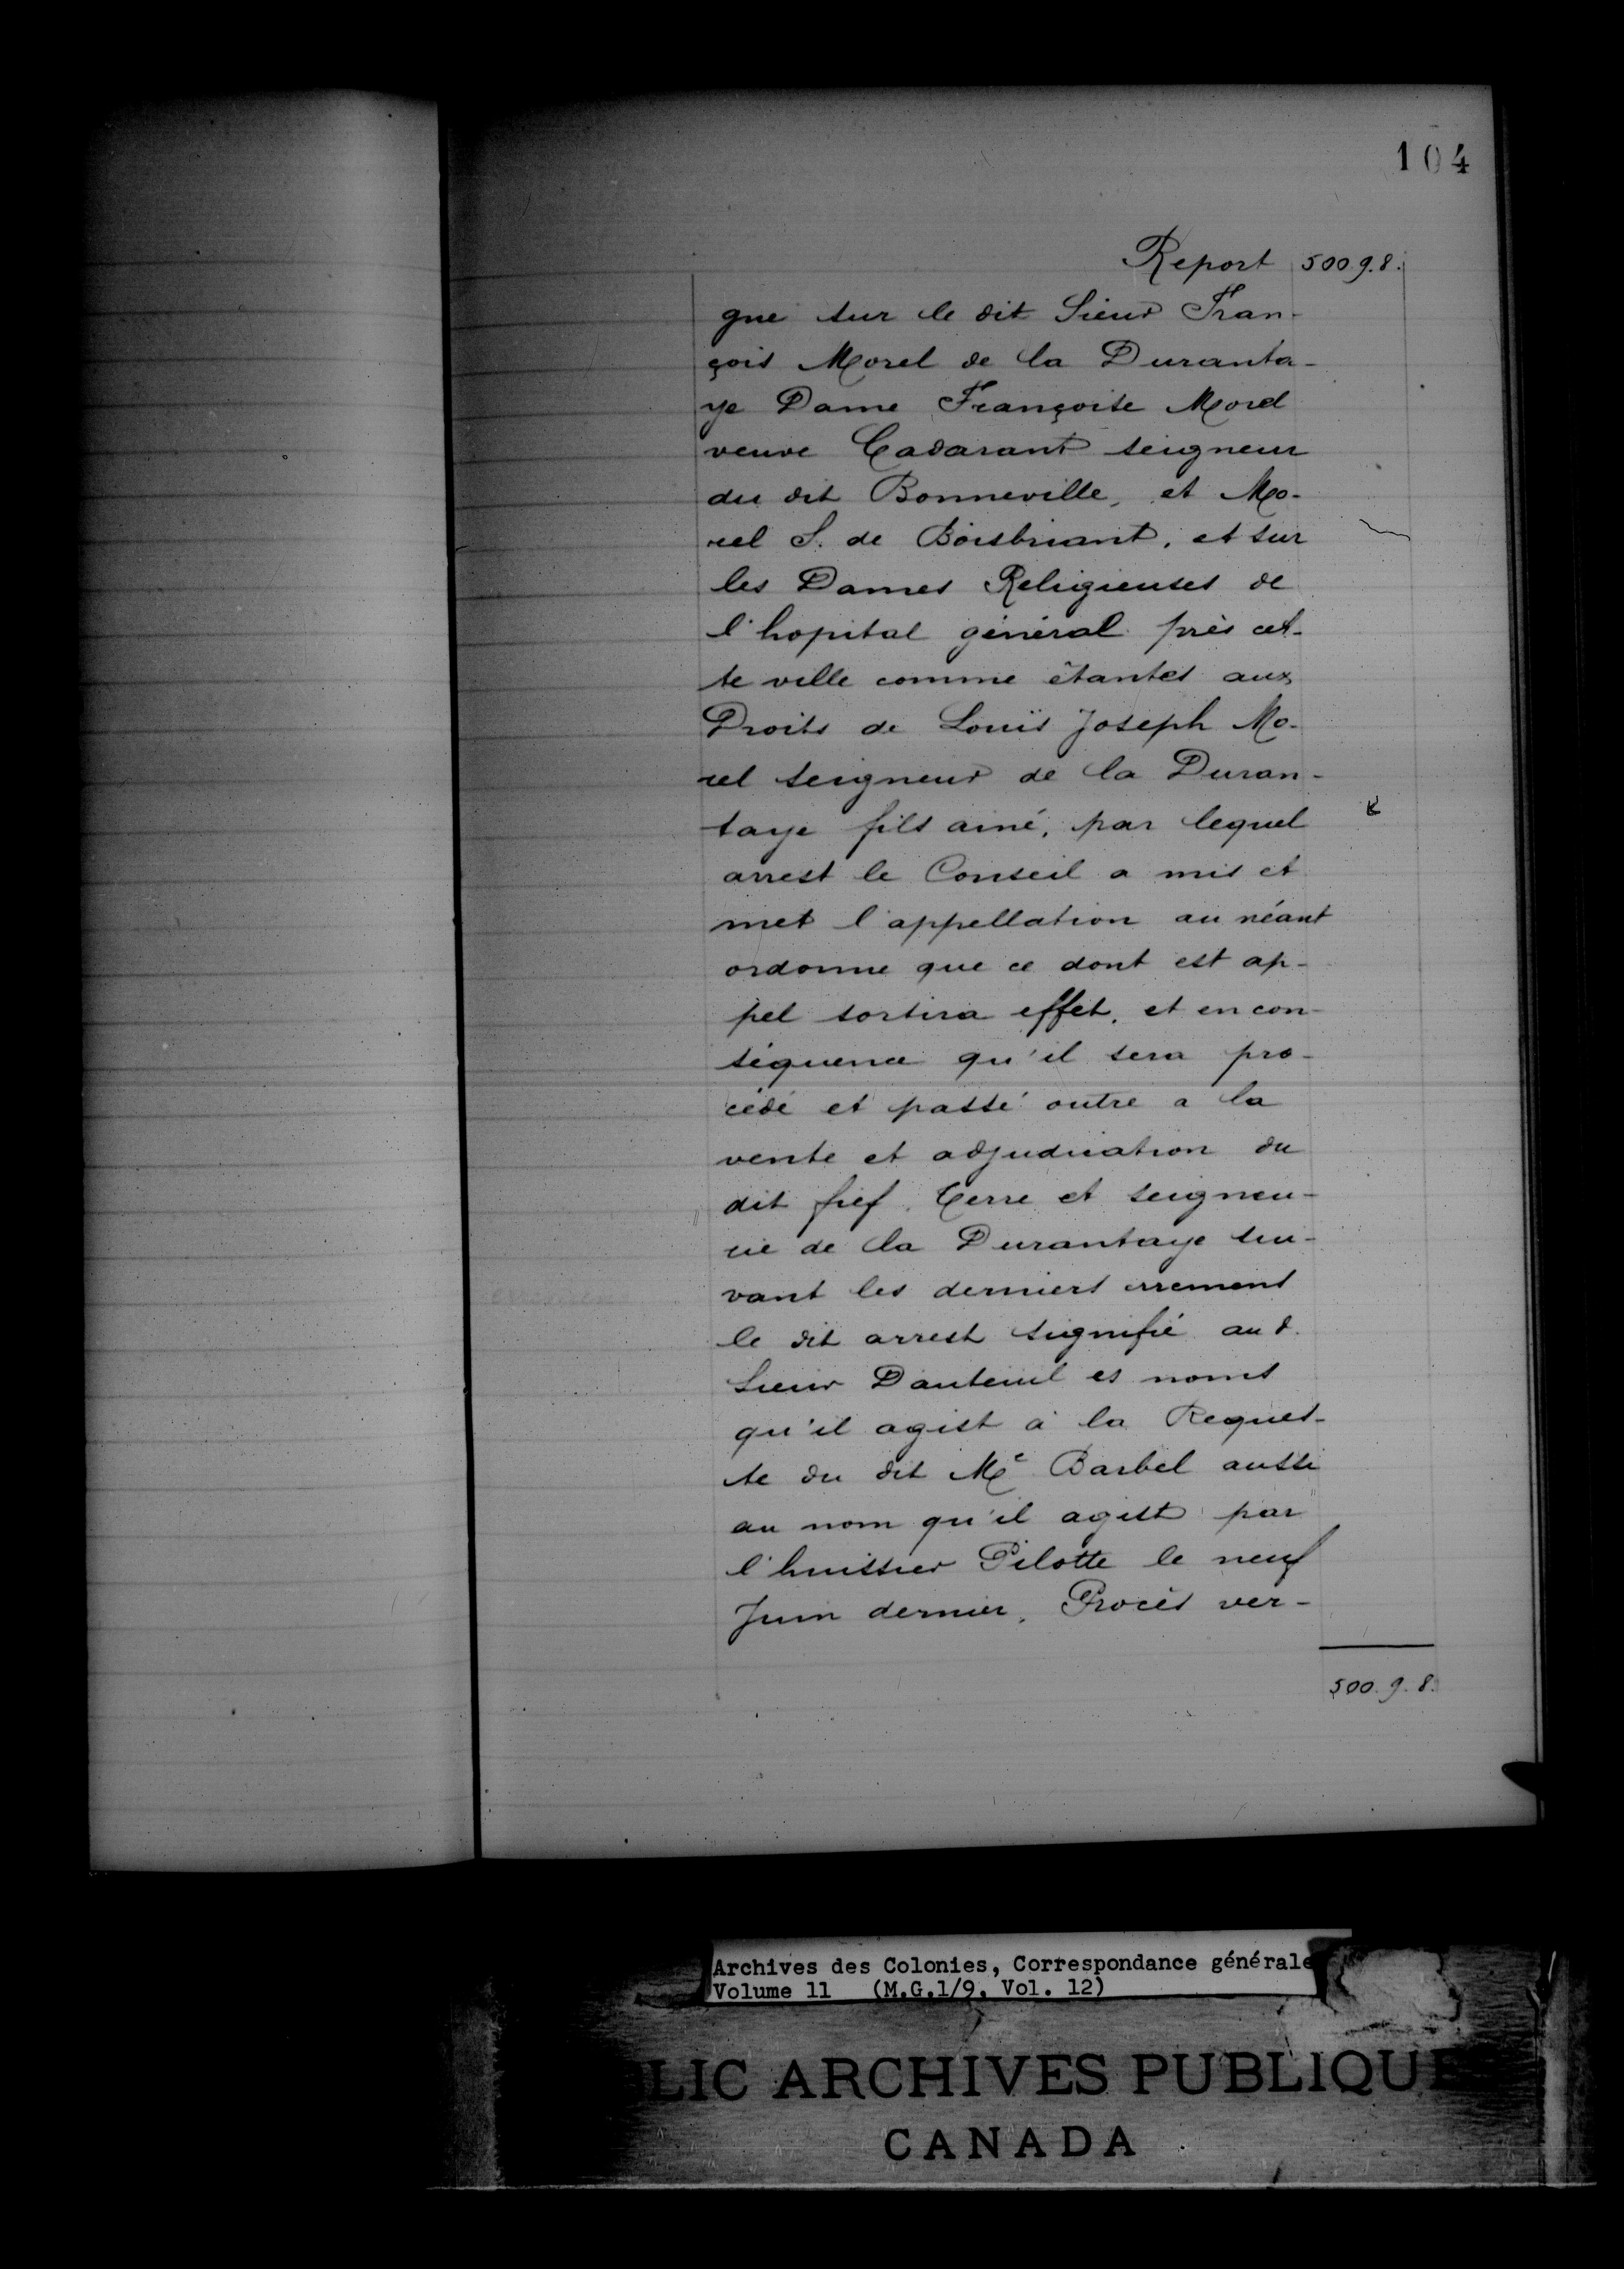 104
Report 500.9.8.
gne sur le dit Sieur Fran-
çois Morel de la Duranta-
ye Dame Françoise Morel
veuve Cadarant seigneur
du dit Bonneville, et Mo-
rel S. de Boisbriant, et sur
les Dames Religieuses de
l'hopital général près cet-
te ville comme êtantes aux
Droits de Louïs Joseph Mo-
rel seigneur de la Duran-
taye fils ainé, par lequel
arrest le Conseil a mis et
met l'appellation au néant
ordonne que ce dont est ap-
pel sortira effet, et en con-
séquence qu'il sera pro-
cédé et passé outre a la
vente et adjudication du
dit fief, Terre et seigneu-
rie de la Durantaye sui-
vant les derniers errement
le dit arrest signifié au d.
Sieur Dauteuil es noms
qu'il agist à la Reques-
te du dit Me Barbel aussi
au nom qu'il agist par
l'huissier Pilotte le neuf
Juin dernier, Procès ver-
500.9.8.
Archives des Colonies, Correspondance générale
Volume 11 (M.G.1/9, Vol. 12)
LIC ARCHIVES PUBLIQUE
CANADA